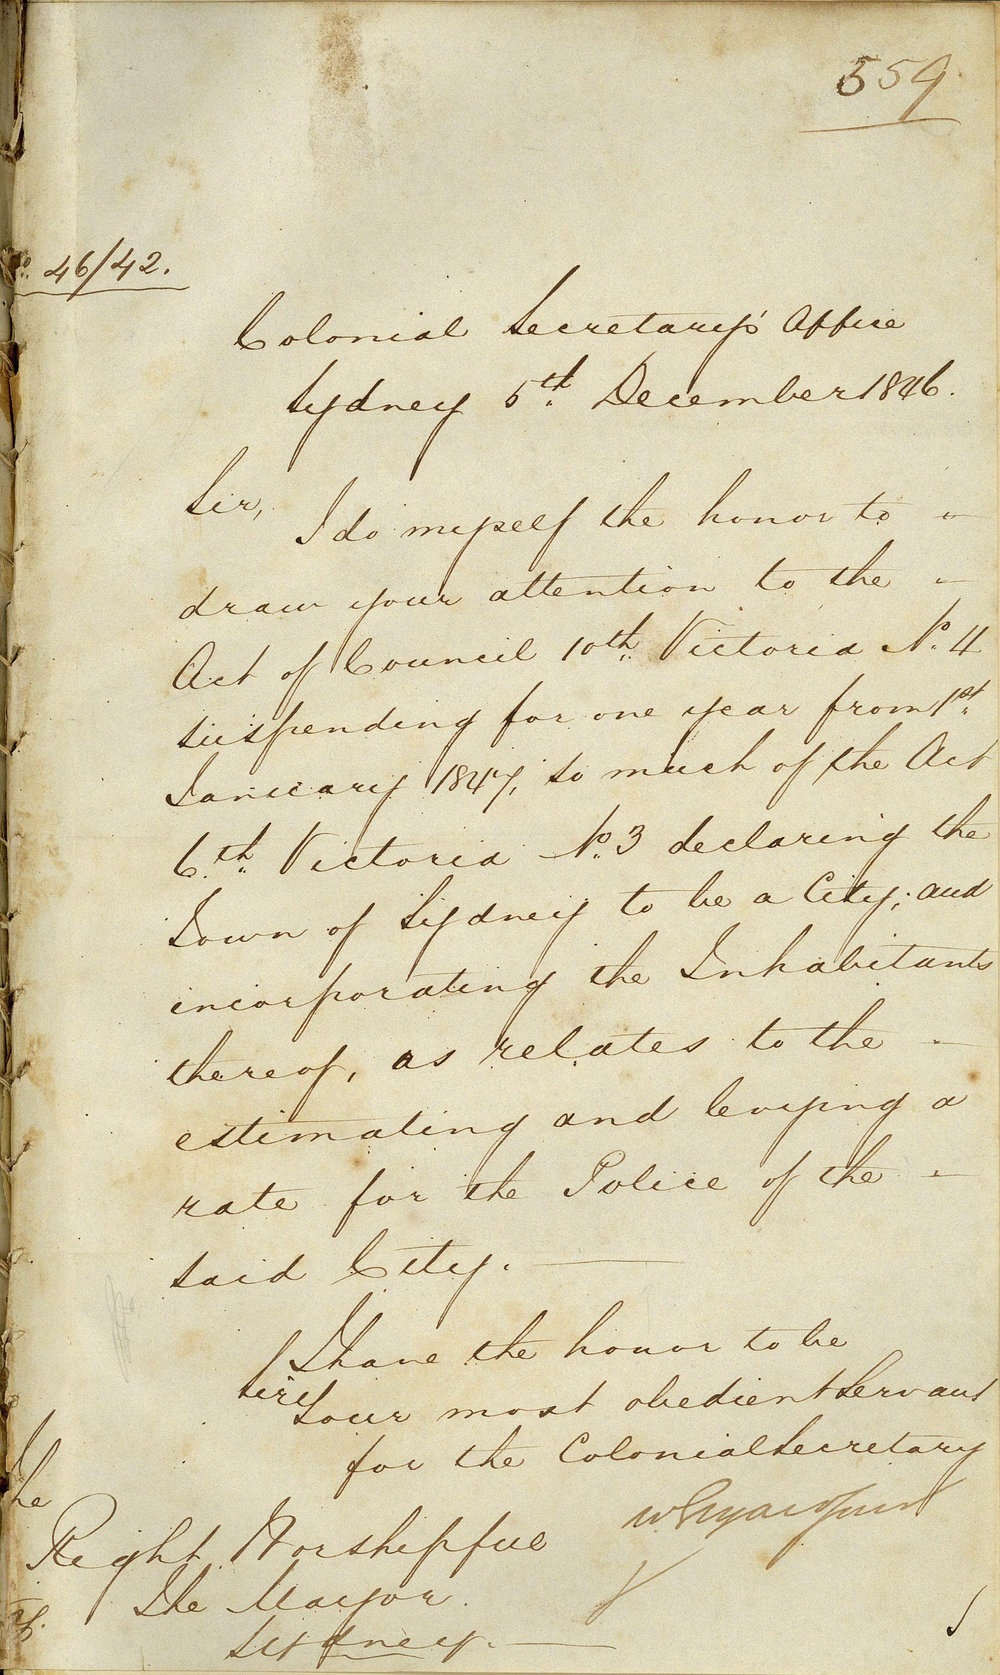 559
No. 46/42.
Colonial Secretary's Office
Sydney 5th December 1846.
Sir,
I do myself the honor to
draw your attention to the
Act of Council 10th Victoria No. 4
suspending for one year from 1st
January 1847, so much of the Act
6th Victoria No. 3 declaring the
Town of Sydney to be a City; and
incorporating the Inhabitants
thereof, as relates to the
estimating and levying a
rate for the Police of the
said City.
I have the honor to be
Sir,
Your most obedient Servant
for the Colonial Secretary
The
Right Worshipful
The Mayor.
Sydney.